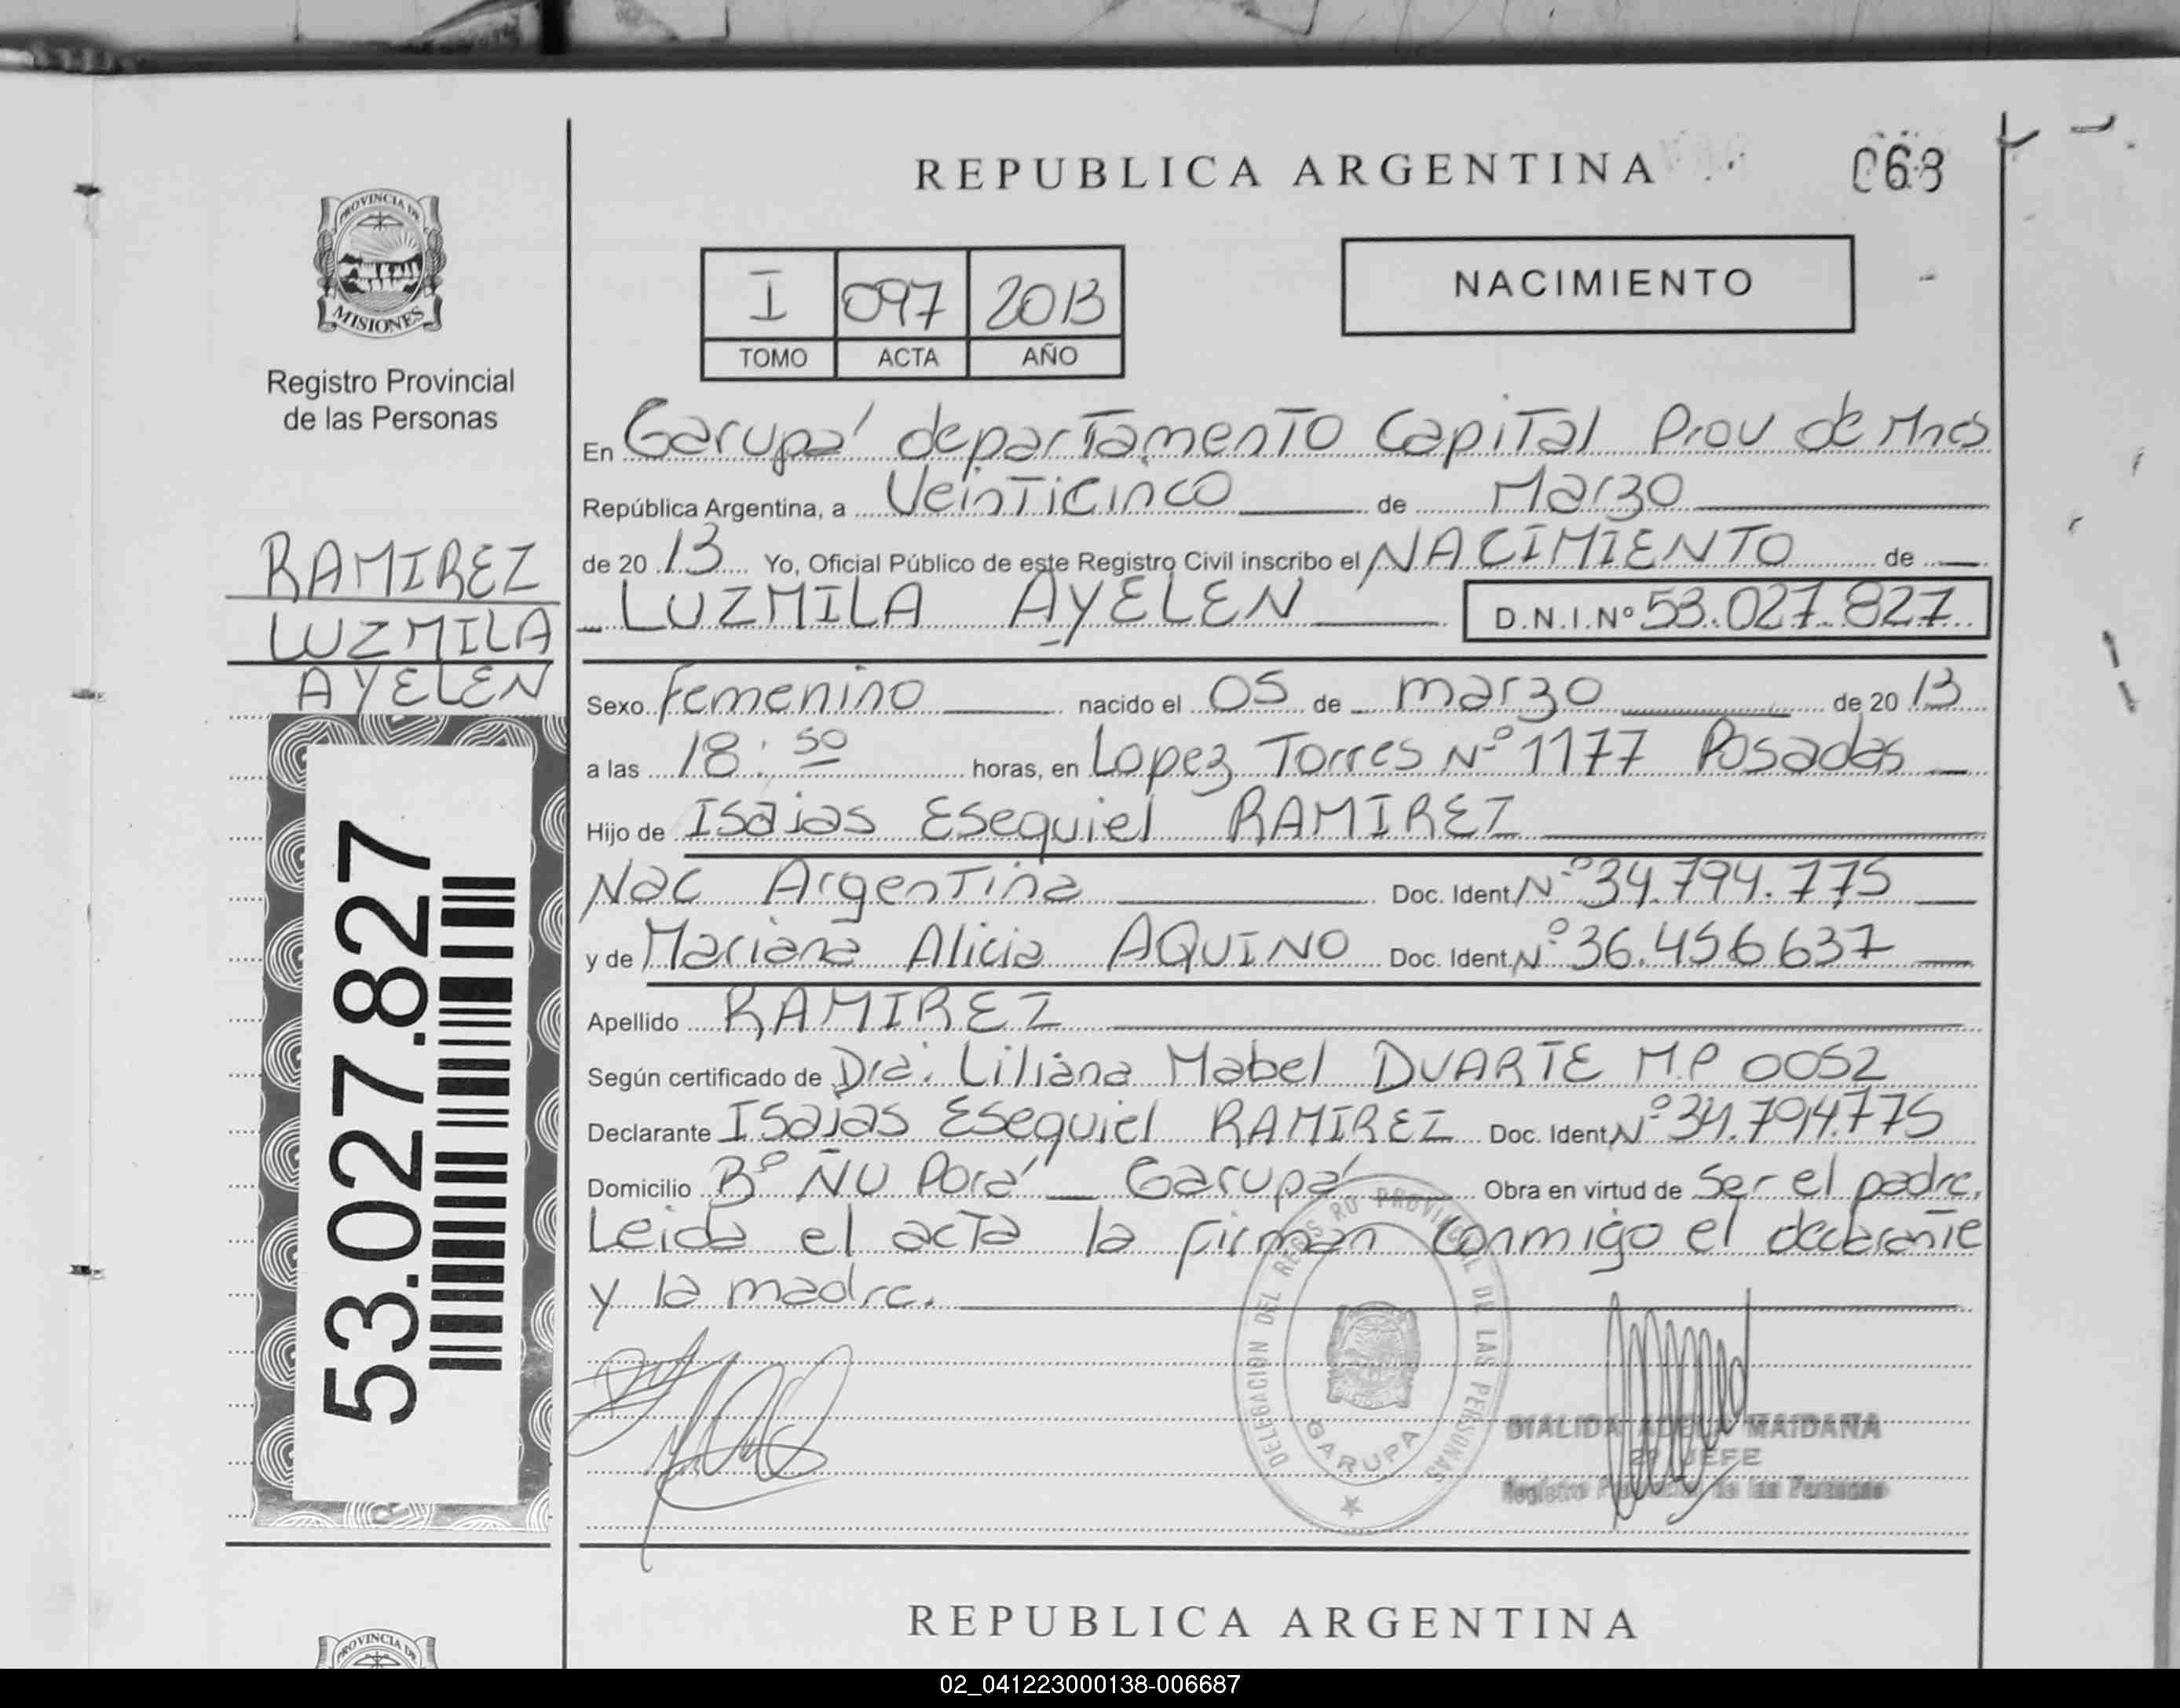 REPUBLICA ARGENTINA
068
PROVINCIA DE
MISIONES
Registro Provincial
de las Personas
I 097 2013
TOMO ACTA AÑO
NACIMIENTO
RAMIREZ
LUZMILA
AYELEN
53.027.827
En Garupá departamento Capital Prov de Mnes
República Argentina, a Veinticinco de Marzo
de 20 13 Yo, Oficial Público de este Registro Civil inscribo el NACIMIENTO de
LUZMILA AYELEN D.N.I. Nº 53.027.827
Sexo femenino nacido el 05 de marzo de 20 13
a las 18:50 horas, en Lopez Torres Nº 1177 Posadas
Hijo de Isaias Esequiel RAMIREZ
Nac Argentina Doc. Ident. Nº 34.794.775
y de Mariana Alicia AQUINO Doc. Ident. Nº 36.456637
Apellido RAMIREZ
Según certificado de Dra. Liliana Mabel DUARTE M.P 0052
Declarante Isaias Esequiel RAMIREZ Doc. Ident. Nº 34.794.775
Domicilio Bº ÑU Porá Garupá Obra en virtud de Ser el padre.
Leida el acta la firman conmigo el declarante
y la madre.
DELEGACION DEL REGISTRO PROVINCIAL DE LAS PERSONAS
GARUPA
MAIDANA
2º JEFE
Registro de las Personas
REPUBLICA ARGENTINA
PROVINCIA DE
02_041223000138-006687